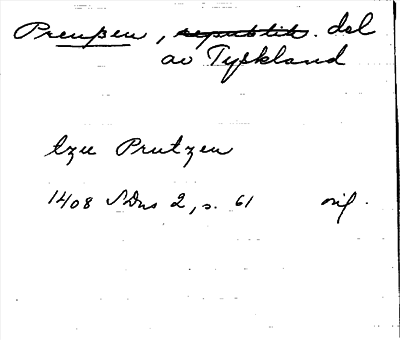 Preußen, republik. del
av Tyskland
tzee Prutzen
1408 SDns 2, s. 61 orig.